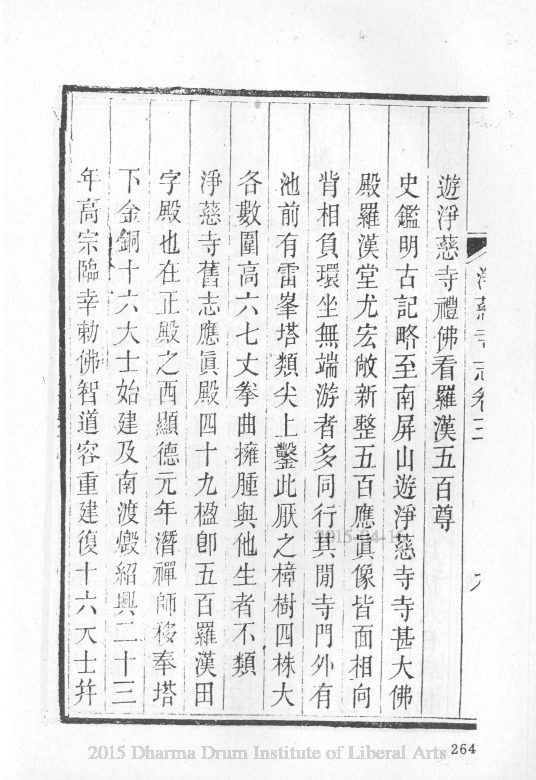 淨慈寺志卷三
遊淨慈寺禮佛看羅漢五百尊
史鑑明古記略至南屏山遊淨慈寺寺甚大佛
殿羅漢堂尤宏敞新整五百應眞像皆面相向
背相負環坐無端游者多同行其閒寺門外有
池前有雷峯塔類尖上鑿此厭之樟樹四株大
各數圍高六七丈拳曲擁腫與他生者不類
淨慈寺舊志應眞殿四十九楹卽五百羅漢田
字殿也在正殿之西顯德元年潛禪師移奉塔
下金銅十六大士始建及南渡燬紹興二十三
年高宗臨幸勅佛智道容重建復十六大士幷
2015-04-1
264
2015 Dharma Drum Institute of Liberal Arts